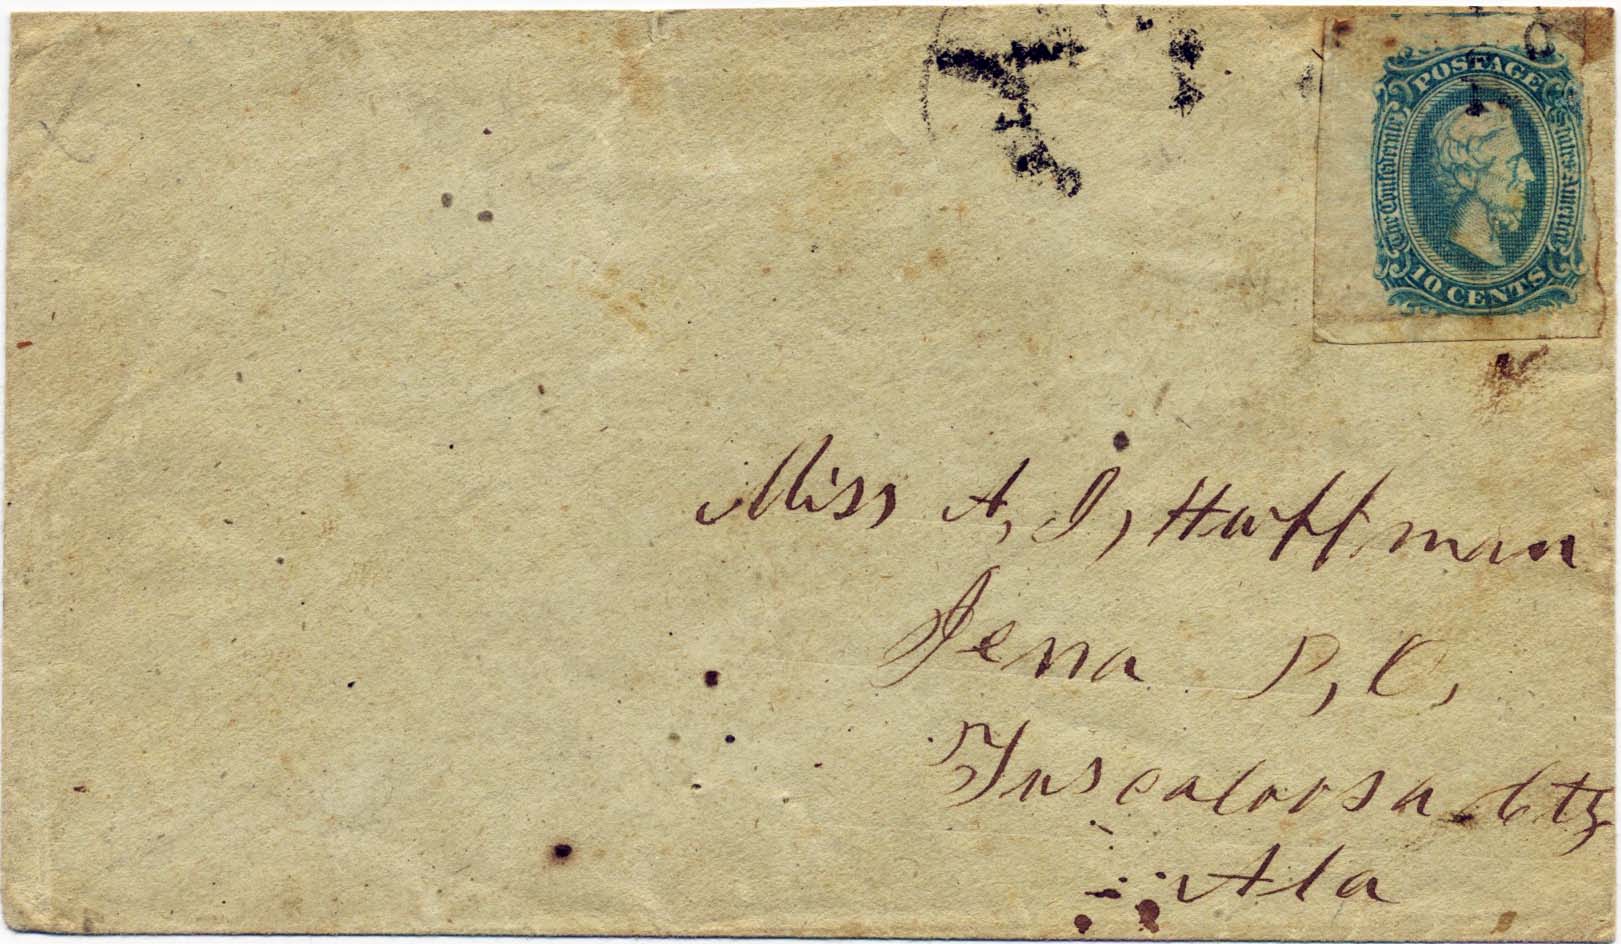 POSTAGE
The Confederate States America
10 CENTS
Miss A, J, Huffman
Jena P, O,
Tuscaloosa Cty
Ala